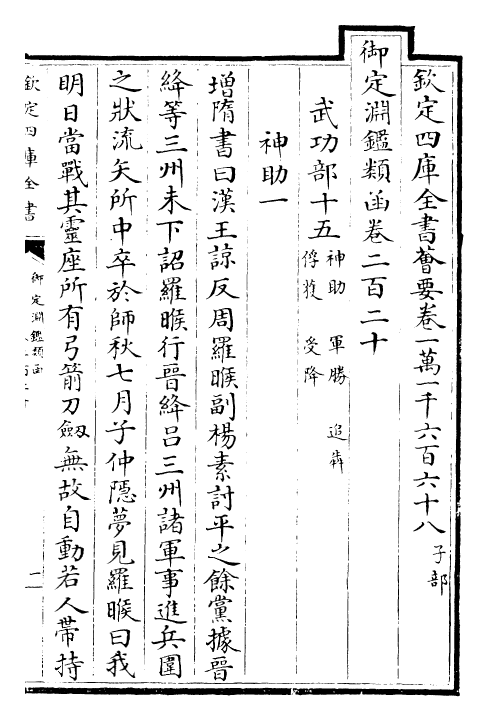 欽定四庫全書薈要卷一萬一千六百六十八 子部
御定淵鑑類函卷二百二十
武功部十五 神助 軍勝 追奔
俘獲 受降
神助一
增隋書曰漢王諒反周羅睺副楊素討平之餘黨據晉
絳等三州未下詔羅睺行晉絳呂三州諸軍事進兵圍
之狀流矢所中卒於師秋七月子仲隱夢見羅睺曰我
明日當戰其靈座所有弓箭刀劔無故自動若人帶持
欽定四庫全書
御定淵鑑類函
一